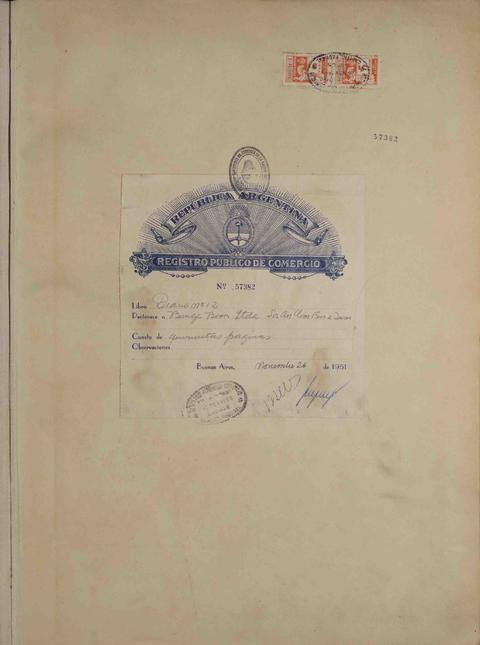 57382
REPUBLICA ARGENTINA
REGISTRO PUBLICO DE COMERCIO
Nº 57382
Libro Diario Nº 12
Pertenece a Bunge Born Ltda
Consta de quinientas paginas
Observaciones
Buenos Aires, Noviembre 26 de 1951